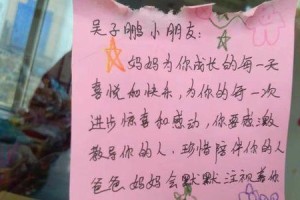 吴子鹏小朋友:
妈妈为你成长的每一天
喜悦和快乐,为你的每一次
进步惊喜和感动,你要感激
教导你的人、珍惜陪伴你的人
爸爸妈妈会默默注视着你